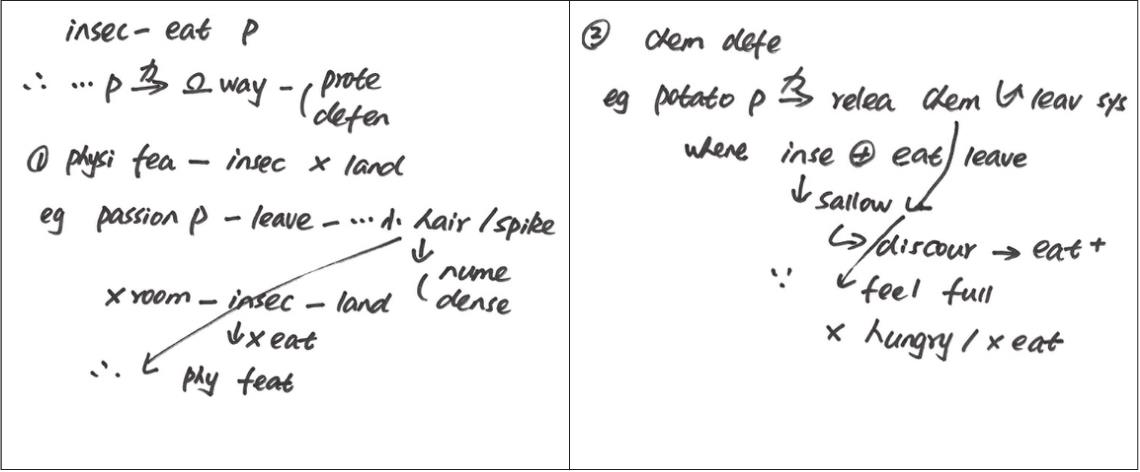 insec - eat p
∴ ... p 为→ 2 way - ( prote
defen
① physi fea - insec × land
eg passion p - leave - ... 小 hair / spike
↓ ( nume
dense
× room - insec - land
↓ × eat
∴ phy feat
② chem defe
eg potato p → relea chem ↳ leav sys
where inse ⊕ eat leave
↓ sallow
↳ discour → eat +
∵ feel full
× hungry / × eat